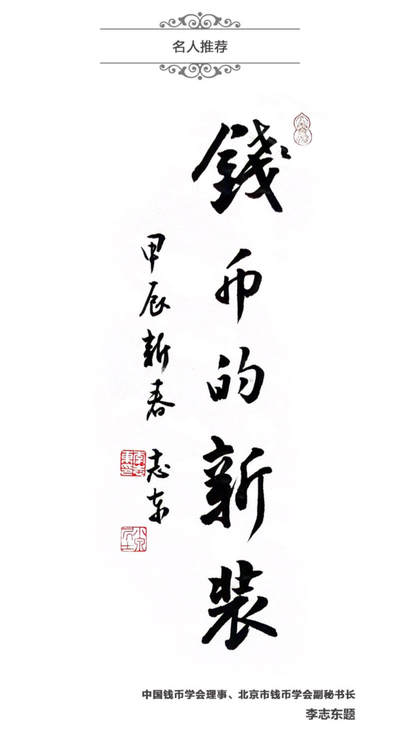 名人推荐
錢币的新装
甲辰新春 志东
中国钱币学会理事、北京市钱币学会副秘书长
李志东题